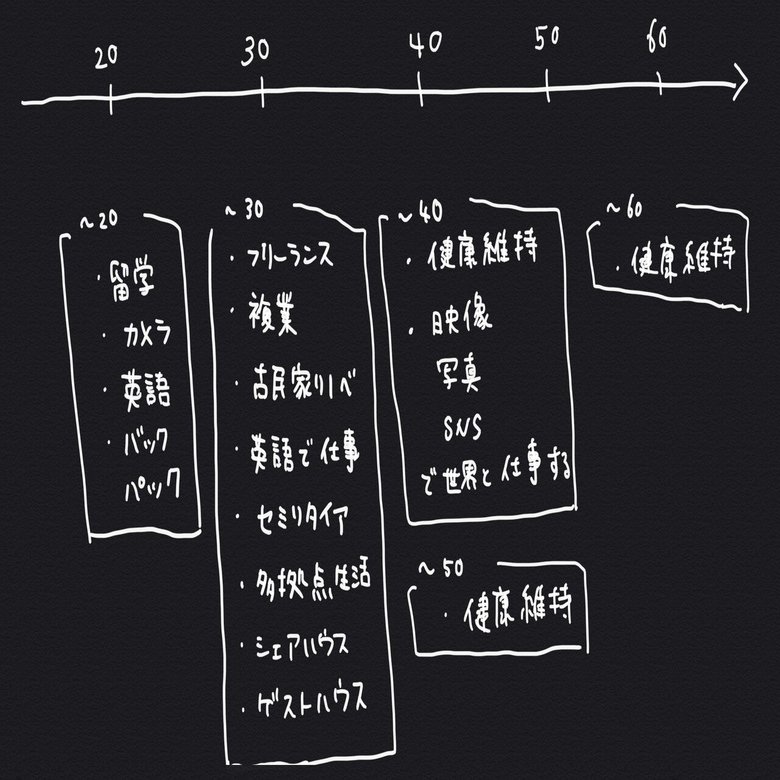 20 30 40 50 60
~20
・留学
・カメラ
・英語
・バック
パック
~30
・フリーランス
・複業
・古民家リノベ
・英語で仕事
・セミリタイア
・多拠点生活
・シェアハウス
・ゲストハウス
~40
・健康維持
・映像
写真
SNS
で世界と仕事する
~50
・健康維持
~60
・健康維持